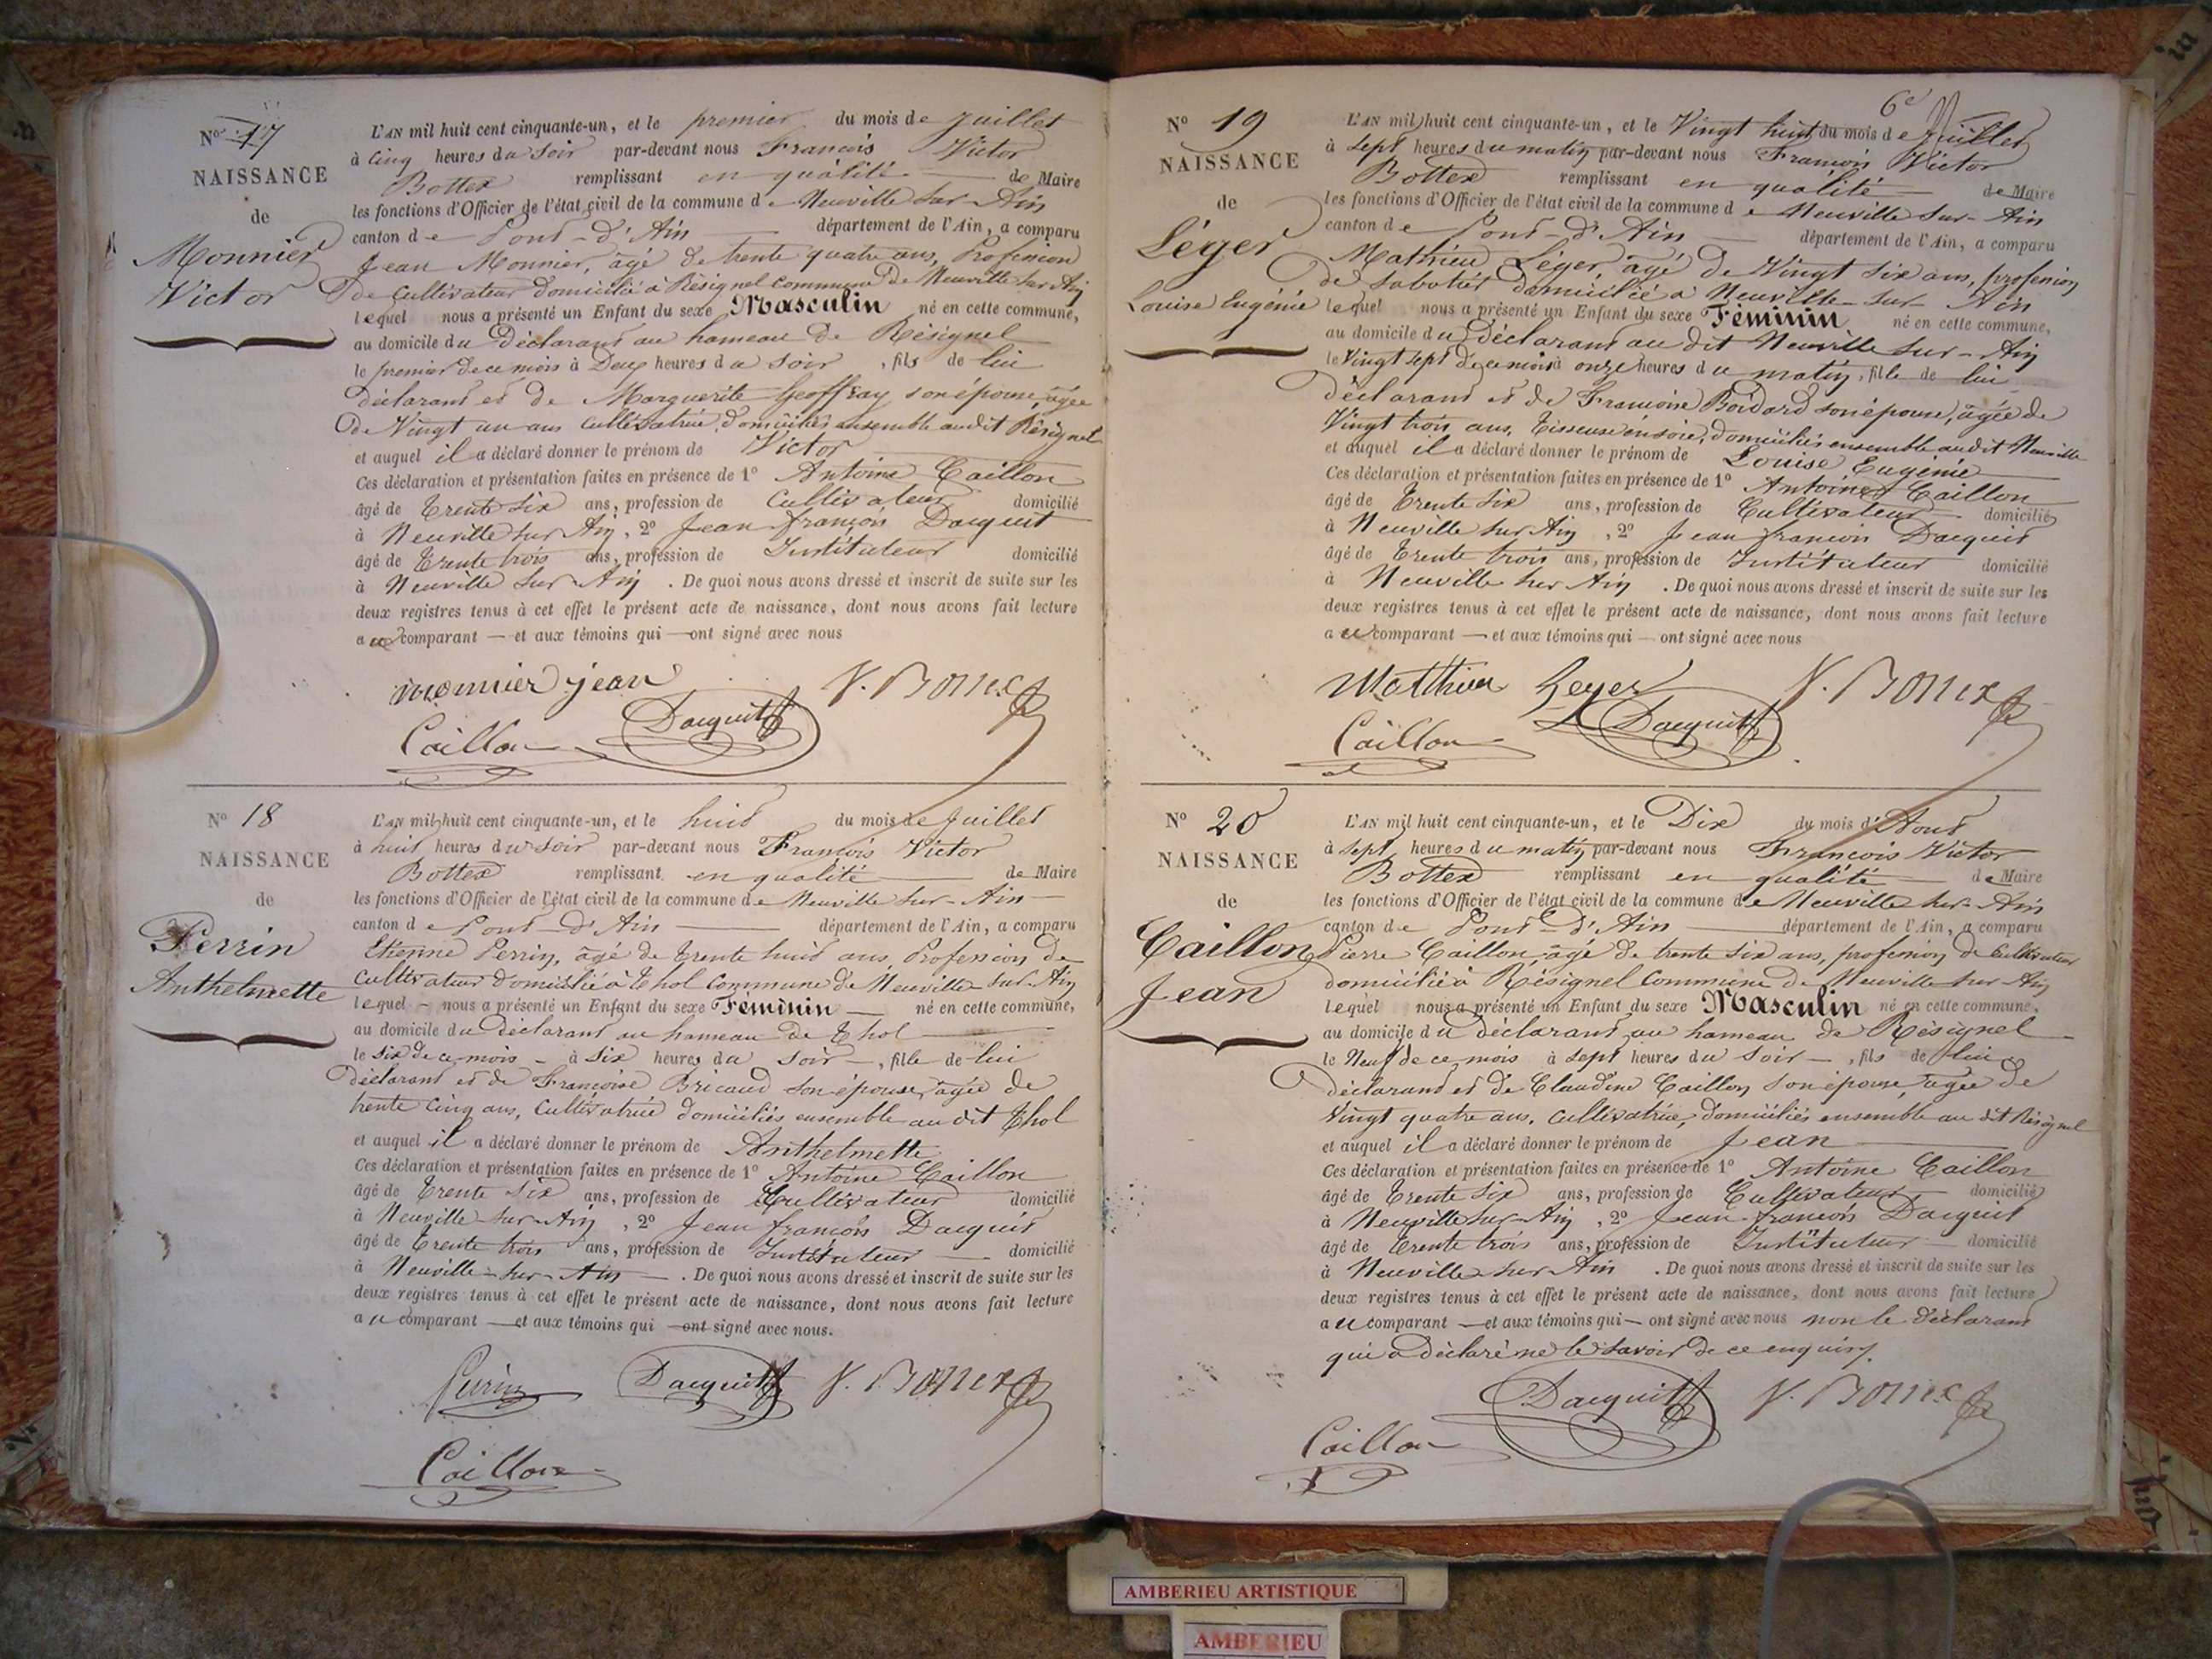 N° 17
NAISSANCE
de
Monnier
Victor
L'AN mil huit cent cinquante-un, et le premier du mois de Juillet
à Cinq heures du Soir par-devant nous François Victor
Bottex remplissant en qualité de Maire
les fonctions d'Officier de l'état civil de la commune de Neuville sur Ain
canton de Pont-d'Ain département de l'Ain, a comparu
Jean Monnier, âgé de trente quatre ans, Profession
de Cultivateur domicilié à Résignel commune de Neuville sur Ain
lequel nous a présenté un Enfant du sexe Masculin né en cette commune,
au domicile du Déclarant au hameau de Résignel
le premier de ce mois à Deux heures du soir, fils de lui
Déclarant et de Marguerite Geoffray son épouse, âgée
de Vingt un ans cultivatrice, domiciliés ensemble audit Résignel
et auquel il a déclaré donner le prénom de Victor
Ces déclaration et présentation faites en présence de 1° Antoine Caillon
âgé de Trente Six ans, profession de Cultivateur domicilié
à Neuville sur Ain, 2° Jean françois Dacquit
âgé de Trente trois ans, profession de Instituteur domicilié
à Neuville sur Ain. De quoi nous avons dressé et inscrit de suite sur les
deux registres tenus à cet effet le présent acte de naissance, dont nous avons fait lecture
au comparant — et aux témoins qui — ont signé avec nous
monnier jean V. Bottex
Caillon Dacquit
N° 18
NAISSANCE
de
Perrin
Anthelmette
L'AN mil huit cent cinquante-un, et le huit du mois de Juillet
à huit heures du Soir par-devant nous François Victor
Bottex remplissant en qualité de Maire
les fonctions d'Officier de l'état civil de la commune de Neuville sur-Ain
canton de Pont-d'Ain département de l'Ain, a comparu
Etienne Perrin, âgé de trente huit ans, Profession de
Cultivateur domicilié à Thol commune de Neuville sur Ain
lequel - nous a présenté un Enfant du sexe Féminin né en cette commune,
au domicile du Déclarant au hameau de Thol
le six de ce mois - à six heures du soir -, fille de lui
Déclarant et de Françoise Bricaud son épouse, âgée de
trente cinq ans, Cultivatrice domiciliés ensemble audit Thol
et auquel il a déclaré donner le prénom de Anthelmette
Ces déclaration et présentation faites en présence de 1° Antoine Caillon
âgé de Trente Six ans, profession de Cultivateur domicilié
à Neuville-sur-Ain, 2° Jean françois Dacquit
âgé de Trente trois ans, profession de Instituteur domicilié
à Neuville-sur-Ain. De quoi nous avons dressé et inscrit de suite sur les
deux registres tenus à cet effet le présent acte de naissance, dont nous avons fait lecture
au comparant — et aux témoins qui — ont signé avec nous.
Perrin Dacquit V. Bottex
Caillon
6e
N° 19
NAISSANCE
de
Léger
Louise Eugénie
L'AN mil huit cent cinquante-un, et le Vingt huit du mois de Juillet
à Sept heures du matin par-devant nous François Victor
Bottex remplissant en qualité de Maire
les fonctions d'Officier de l'état civil de la commune de Neuville sur-Ain
canton de Pont-d'Ain département de l'Ain, a comparu
Mathieu Léger, âgé de Vingt Six ans, profession
de Sabotier domicilié à Neuville-sur-Ain
lequel nous a présenté un Enfant du sexe Féminin né en cette commune,
au domicile du Déclarant au dit Neuville sur-Ain
le Vingt sept de ce mois à onze heures du matin, fille de lui
Déclarant et de Françoise Boidard son épouse, âgée de
Vingt trois ans, Tisseuse en soie, domiciliés ensemble audit Neuville
et auquel il a déclaré donner le prénom de Louise Eugénie
Ces déclaration et présentation faites en présence de 1° Antoine Caillon
âgé de Trente Six ans, profession de Cultivateur domicilié
à Neuville sur Ain, 2° Jean françois Dacquit
âgé de Trente trois ans, profession de Instituteur domicilié
à Neuville sur Ain. De quoi nous avons dressé et inscrit de suite sur les
deux registres tenus à cet effet le présent acte de naissance, dont nous avons fait lecture
au comparant — et aux témoins qui — ont signé avec nous
Matthieu Leger V. Bottex
Caillon Dacquit
N° 20
NAISSANCE
de
Caillon
Jean
L'AN mil huit cent cinquante-un, et le Dix du mois d'Aout
à Sept heures du matin par-devant nous François Victor
Bottex remplissant en qualité de Maire
les fonctions d'Officier de l'état civil de la commune de Neuville sur-Ain
canton de Pont-d'Ain département de l'Ain, a comparu
Pierre Caillon âgé de trente Six ans, profession de Cultivateur
domicilié à Résignel Commune de Neuville sur Ain
lequel nous a présenté un Enfant du sexe Masculin né en cette commune,
au domicile du Déclarant au hameau de Résignel
le Neuf de ce mois à Sept heures du soir -, fils de lui
Déclarant et de Claudine Caillon son épouse, âgée de
Vingt quatre ans, cultivatrice, domiciliés ensemble au dit Résignel
et auquel il a déclaré donner le prénom de Jean
Ces déclaration et présentation faites en présence de 1° Antoine Caillon
âgé de Trente Six ans, profession de Cultivateur domicilié
à Neuville sur-Ain, 2° Jean-françois Dacquit
âgé de Trente trois ans, profession de Instituteur domicilié
à Neuville sur Ain. De quoi nous avons dressé et inscrit de suite sur les
deux registres tenus à cet effet le présent acte de naissance, dont nous avons fait lecture
au comparant — et aux témoins qui — ont signé avec nous non le Déclarant
qui a Déclaré ne le savoir de ce enquis.
Dacquit V. Bottex
Caillon
AMBERIEU ARTISTIQUE
AMBERIEU